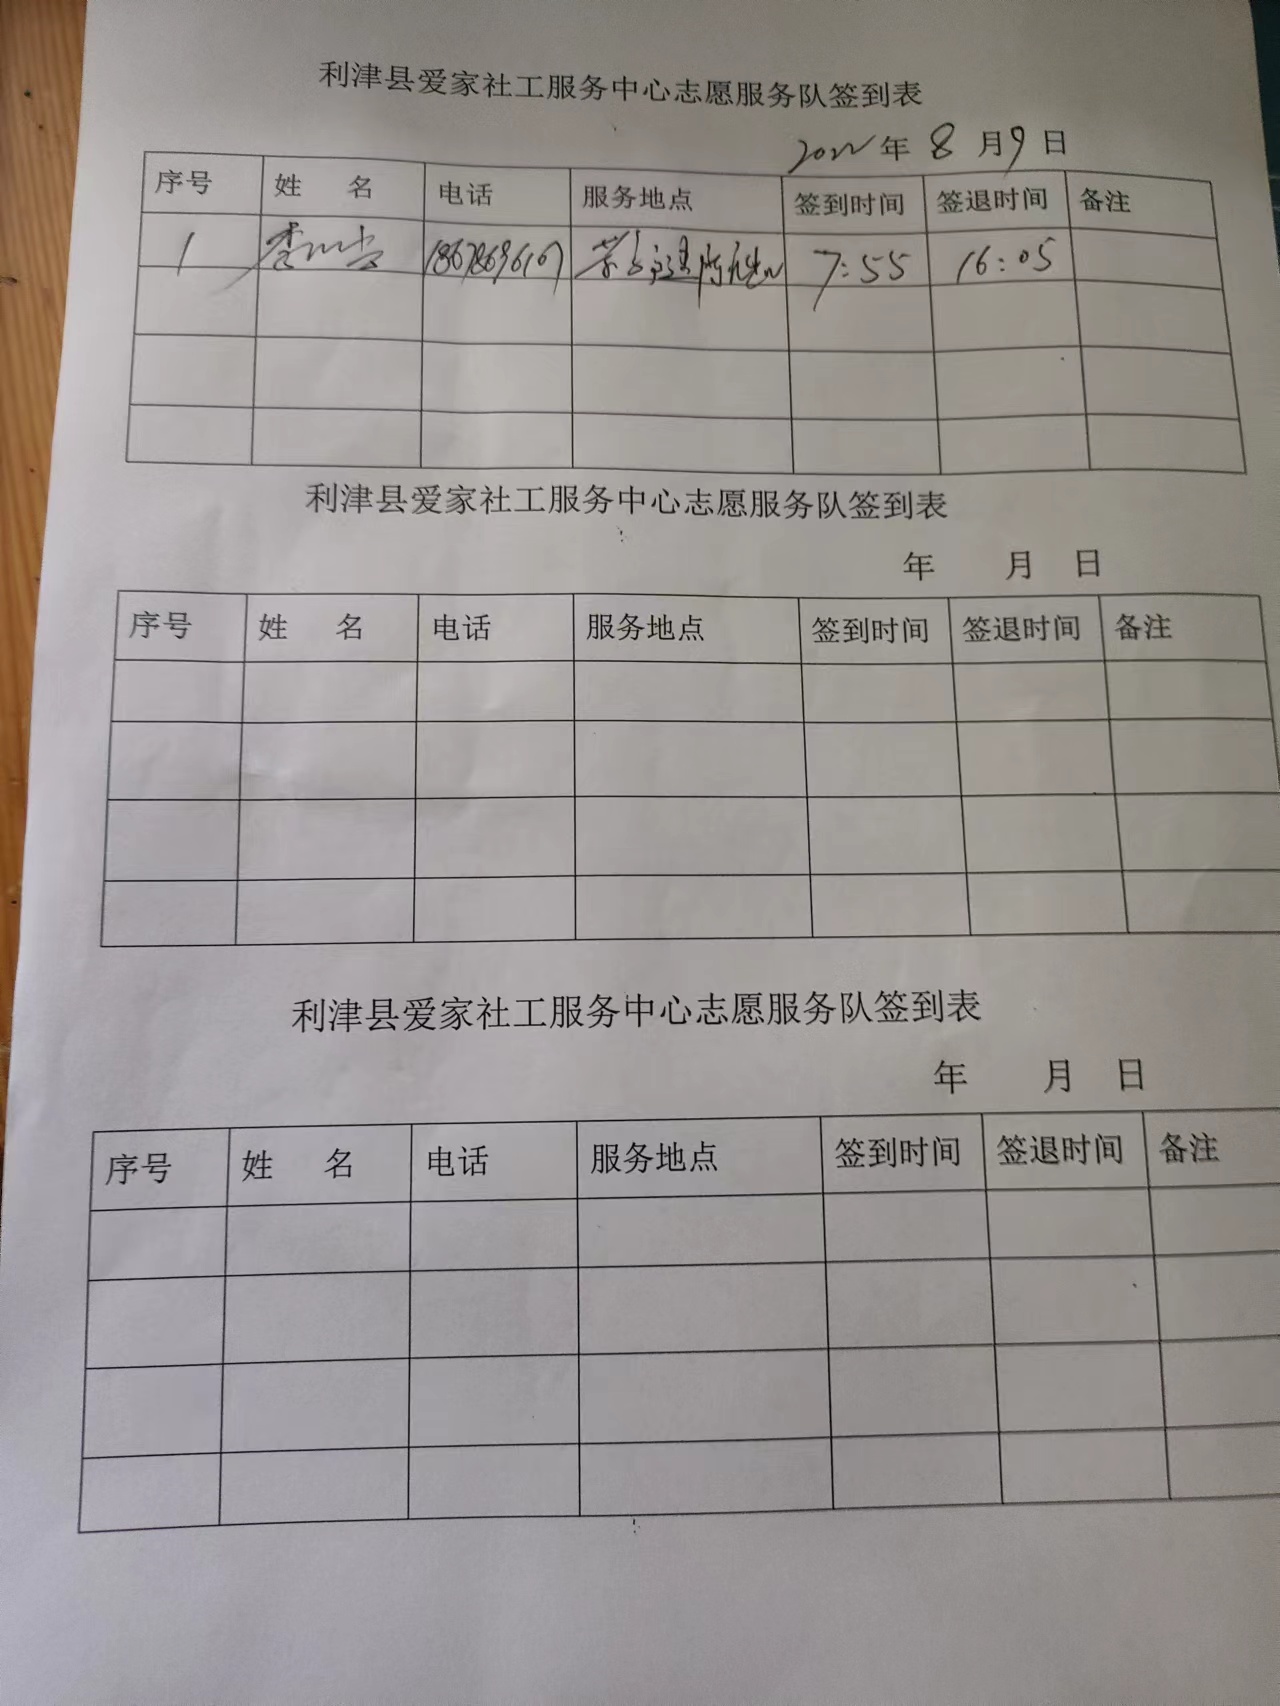 利津县爱家社工服务中心志愿服务队签到表
2022年 8 月 9 日
序号 姓 名 电话 服务地点 签到时间 签退时间 备注
1 李 7:55 16:05
利津县爱家社工服务中心志愿服务队签到表
年 月 日
序号 姓 名 电话 服务地点 签到时间 签退时间 备注
利津县爱家社工服务中心志愿服务队签到表
年 月 日
序号 姓 名 电话 服务地点 签到时间 签退时间 备注